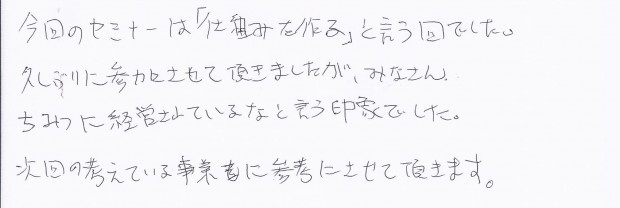 今回のセミナーは「仕組みを作る」と言う回でした。
久しぶりに参加させて頂きましたが、みなさん
ちみつに経営されているなと言う印象でした。
次回の考えている事業者に参考にさせて頂きます。